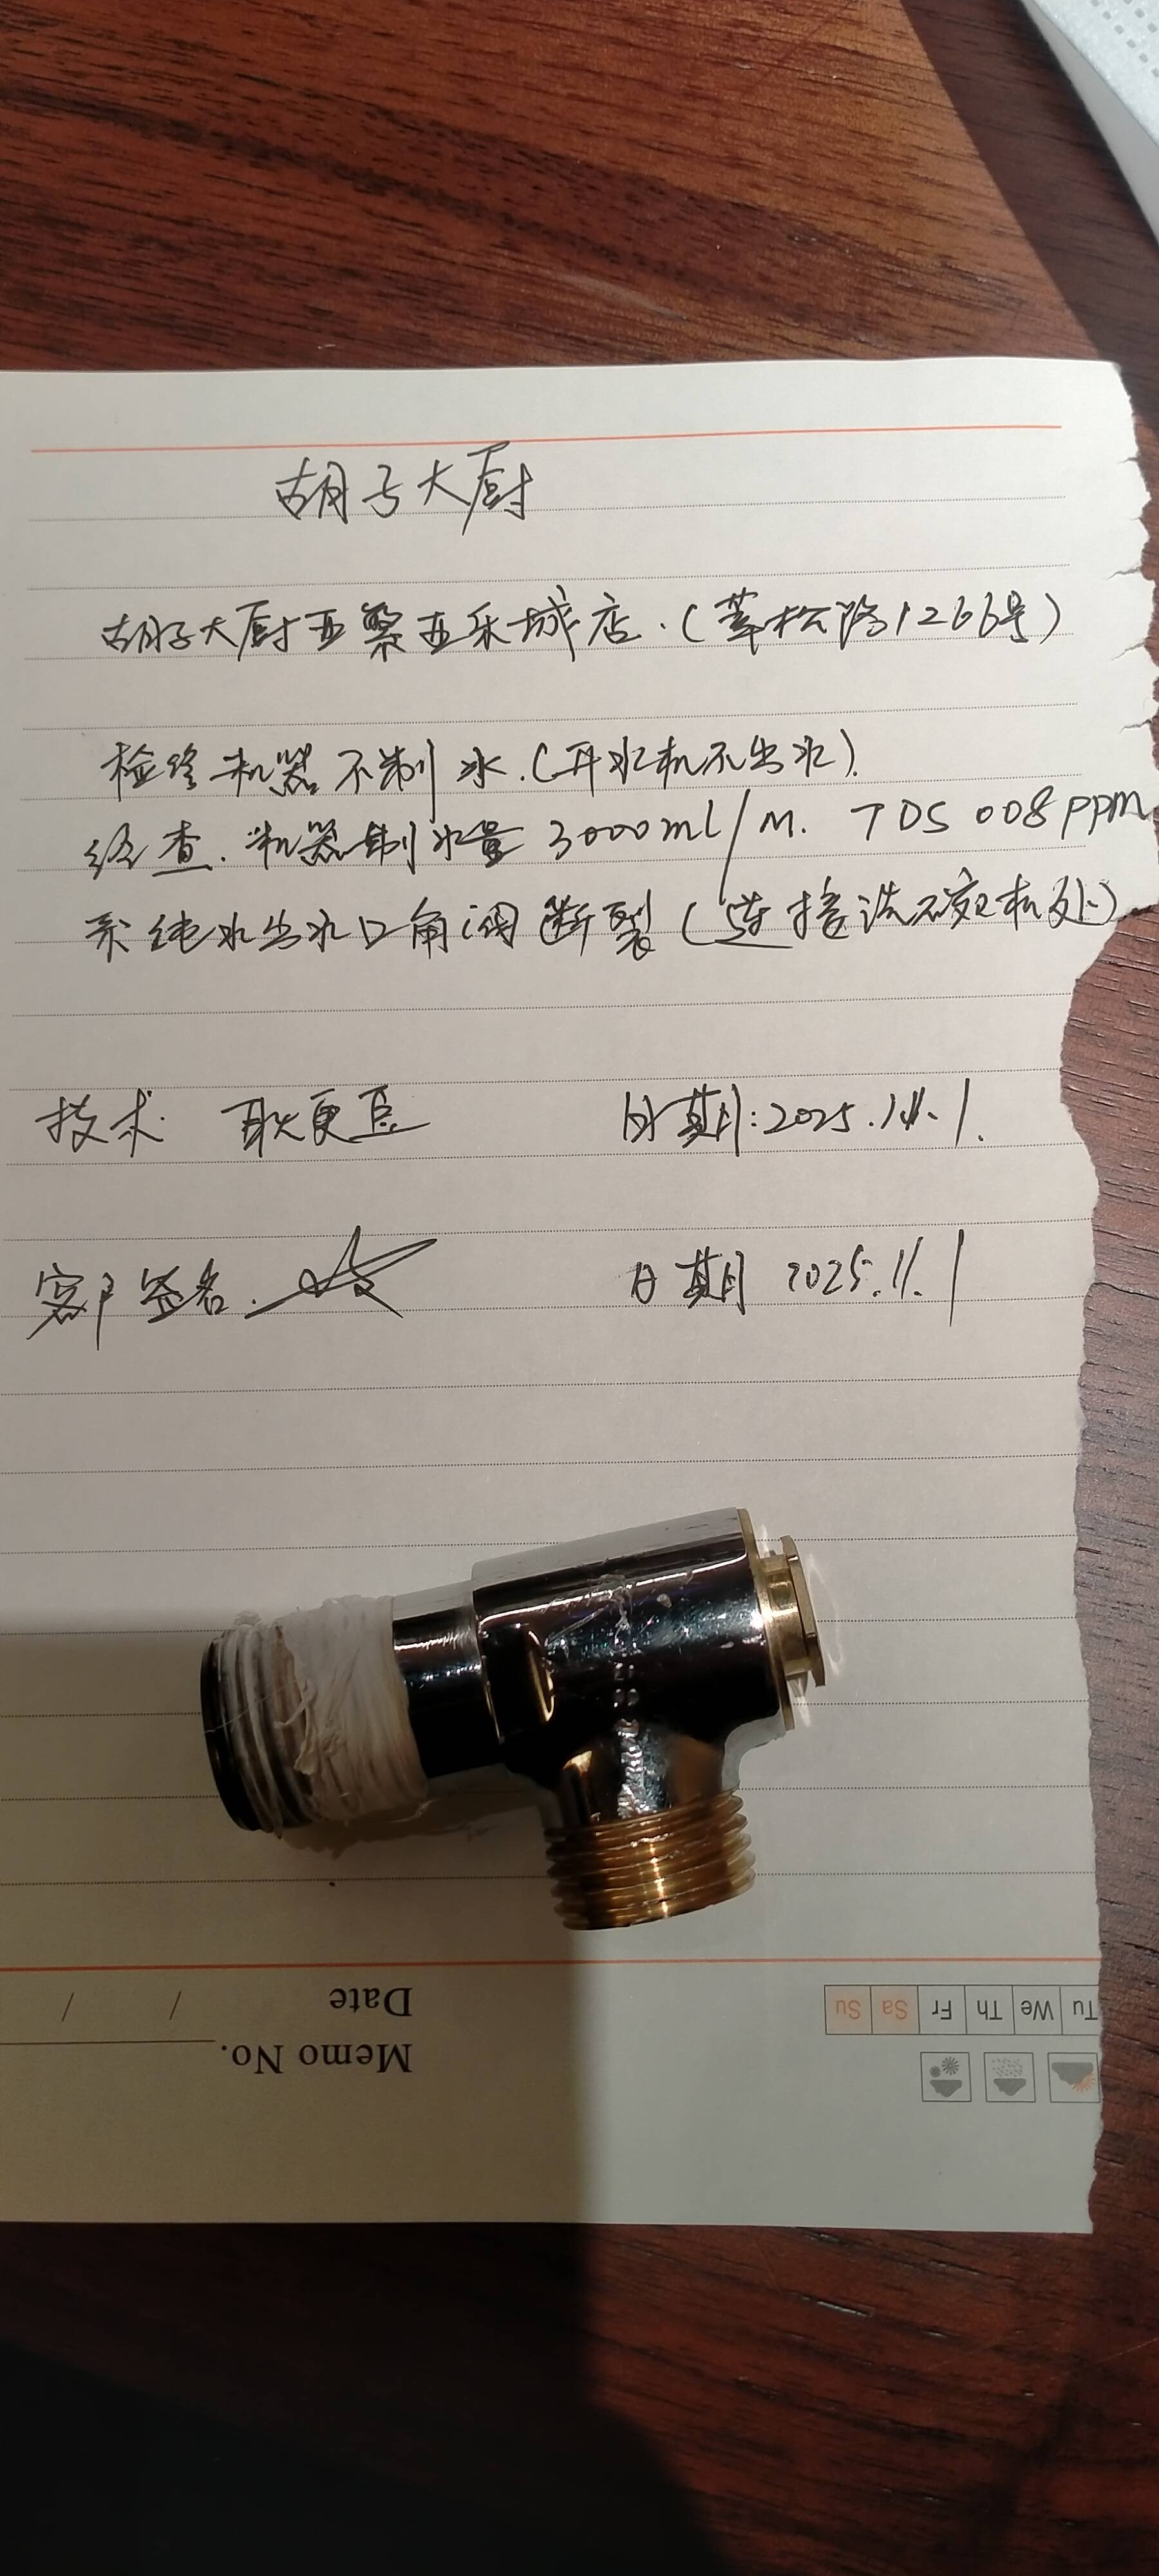 胡子大厨
胡子大厨亚繁亚乐城店.(莘松路1266号)
检修机器不制水.(开水机不出水).
经查.机器制水量3000ml/M. TDS 008ppm
系纯水出水口角阀断裂(连接洗碗机处)
技术 耿更豆 日期:2025.11.1.
客户签名. 日期 2025.11.1
Date / /
Memo No.
Tu We Th Fr Sa Su